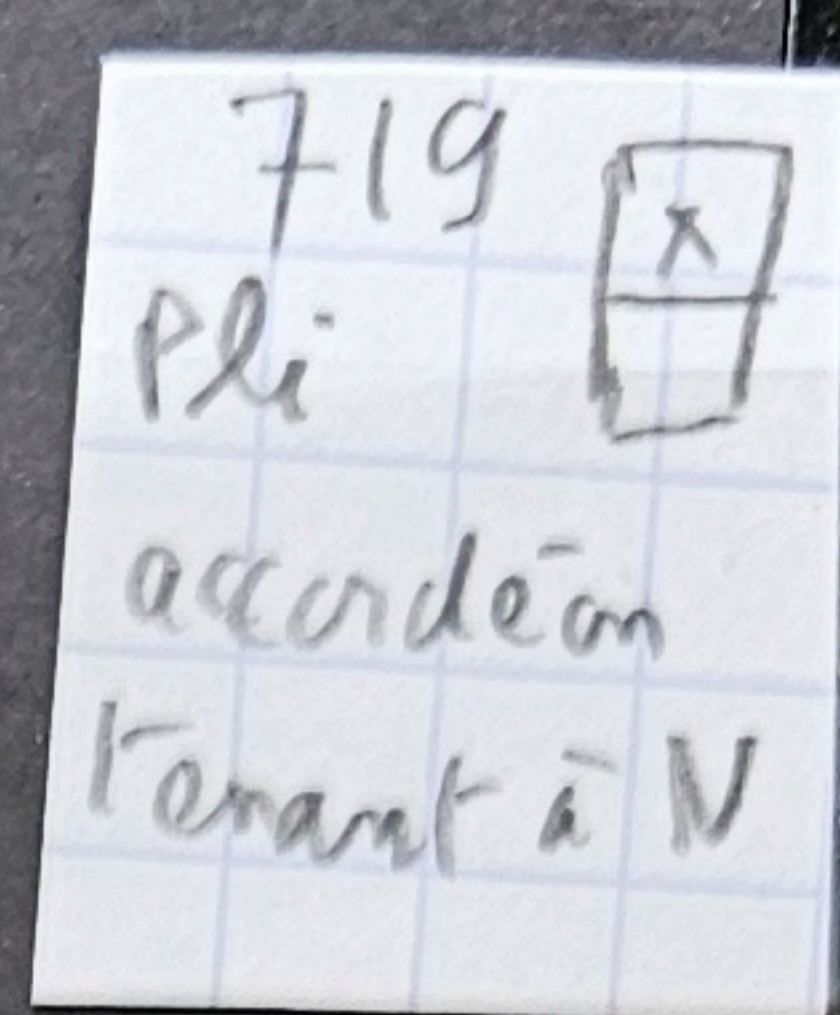 719 X
Pli
accordéon
tenant à N